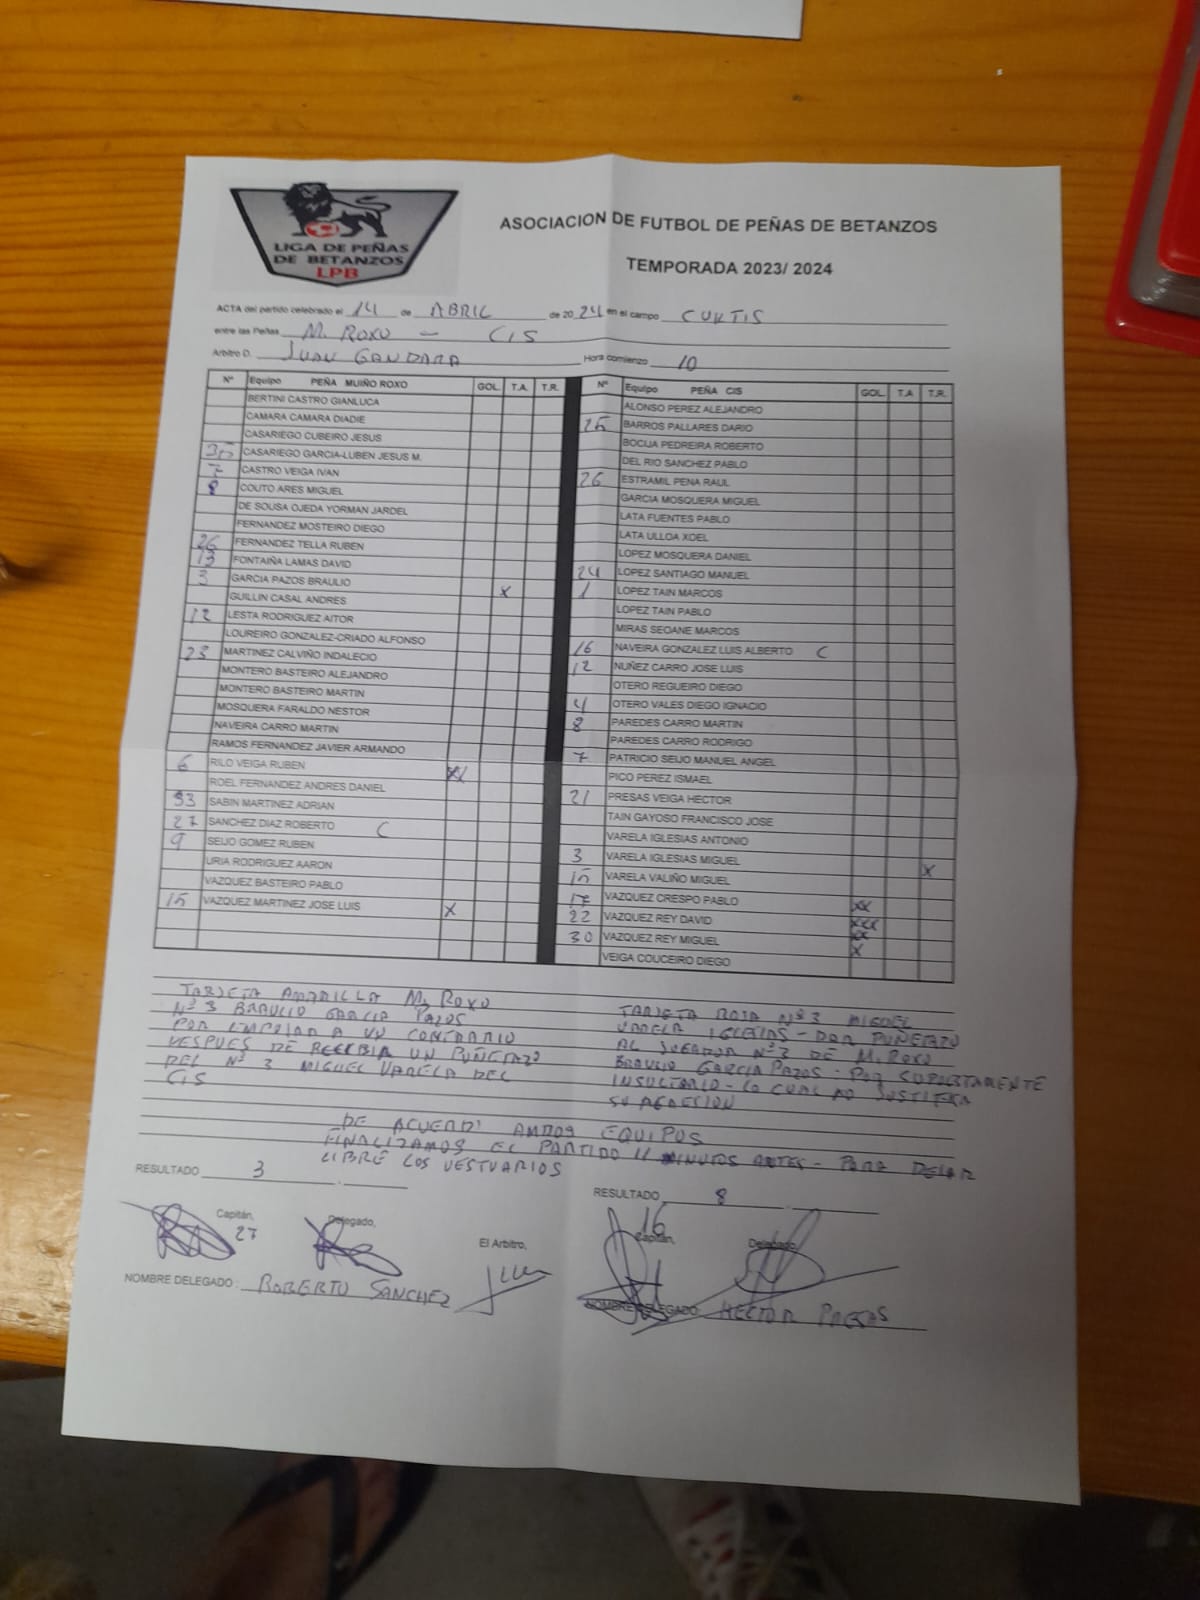 LIGA DE PEÑAS
DE BETANZOS
LPB
ASOCIACION DE FUTBOL DE PEÑAS DE BETANZOS
TEMPORADA 2023/ 2024
ACTA del partido celebrado el 14 de ABRIL de 2024 en el campo CURTIS
entre las Peñas M. ROXO - CIS
Arbitro D. JUAN GANDARA Hora comienzo 10
Nº Equipo PEÑA MUIÑO ROXO GOL. T.A. T.R.
BERTINI CASTRO GIANLUCA
CAMARA CAMARA DIADIE
CASARIEGO CUBEIRO JESUS
35 CASARIEGO GARCIA-LUBEN JESUS M.
7 CASTRO VEIGA IVAN
8 COUTO ARES MIGUEL
DE SOUSA OJEDA YORMAN JARDEL
FERNANDEZ MOSTEIRO DIEGO
26 FERNANDEZ TELLA RUBEN
13 FONTAIÑA LAMAS DAVID
3 GARCIA PAZOS BRAULIO X
GUILLIN CASAL ANDRES
12 LESTA RODRIGUEZ AITOR
LOUREIRO GONZALEZ-CRIADO ALFONSO
23 MARTINEZ CALVIÑO INDALECIO
MONTERO BASTEIRO ALEJANDRO
MONTERO BASTEIRO MARTIN
MOSQUERA FARALDO NESTOR
NAVEIRA CARRO MARTIN
RAMOS FERNANDEZ JAVIER ARMANDO
6 RILO VEIGA RUBEN XX
ROEL FERNANDEZ ANDRES DANIEL
93 SABIN MARTINEZ ADRIAN
27 SANCHEZ DIAZ ROBERTO C
9 SEIJO GOMEZ RUBEN
URIA RODRIGUEZ AARON
VAZQUEZ BASTEIRO PABLO
15 VAZQUEZ MARTINEZ JOSE LUIS X
Nº Equipo PEÑA CIS GOL. T.A T.R.
ALONSO PEREZ ALEJANDRO
25 BARROS PALLARES DARIO
BOCIJA PEDREIRA ROBERTO
DEL RIO SANCHEZ PABLO
26 ESTRAMIL PENA RAUL
GARCIA MOSQUERA MIGUEL
LATA FUENTES PABLO
LATA ULLOA XOEL
LOPEZ MOSQUERA DANIEL
24 LOPEZ SANTIAGO MANUEL
1 LOPEZ TAIN MARCOS
LOPEZ TAIN PABLO
MIRAS SEOANE MARCOS
16 NAVEIRA GONZALEZ LUIS ALBERTO C
12 NUÑEZ CARRO JOSE LUIS
OTERO REGUEIRO DIEGO
4 OTERO VALES DIEGO IGNACIO
8 PAREDES CARRO MARTIN
PAREDES CARRO RODRIGO
7 PATRICIO SEIJO MANUEL ANGEL
PICO PEREZ ISMAEL
21 PRESAS VEIGA HECTOR
TAIN GAYOSO FRANCISCO JOSE
VARELA IGLESIAS ANTONIO
3 VARELA IGLESIAS MIGUEL X
15 VARELA VALIÑO MIGUEL
17 VAZQUEZ CRESPO PABLO XX
22 VAZQUEZ REY DAVID XXX
30 VAZQUEZ REY MIGUEL XX
VEIGA COUCEIRO DIEGO X
TARJETA AMARILLA M. ROXO
Nº 3 BRAULIO GARCIA PAZOS
POR EMPUJAR A UN CONTRARIO
DESPUES DE RECIBIR UN PUÑETAZO
DEL Nº 3 MIGUEL VARELA DEL
CIS
TARJETA ROJA Nº 3 MIGUEL
VARELA IGLESIAS - DAR PUÑETAZO
AL JUGADOR Nº 3 DE M. ROXO
BRAULIO GARCIA PAZOS - POR SUPUESTAMENTE
INSULTARLO - LO CUAL NO JUSTIFICA
SU AGRESION
DE ACUERDO AMBOS EQUIPOS
FINALIZAMOS EL PARTIDO 11 MINUTOS ANTES - PARA DEJAR
LIBRE LOS VESTUARIOS
RESULTADO 3
RESULTADO 8
Capitán, 27 Delegado,
El Arbitro,
16 Capitán, Delegado
NOMBRE DELEGADO: ROBERTO SANCHEZ
NOMBRE DELEGADO HECTOR PRESAS